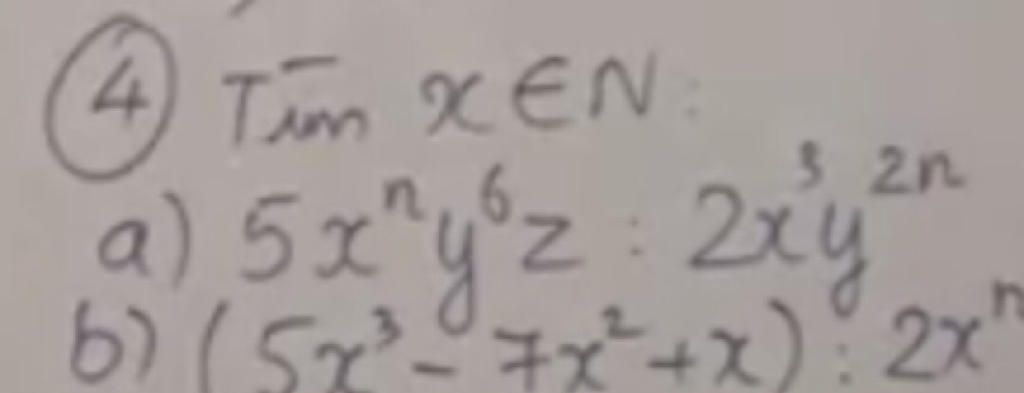 ④ Tìm x ∈ N:
a) 5xⁿy⁶z : 2x³y²ⁿ
b) (5x³ - 7x² + x) : 2xⁿ